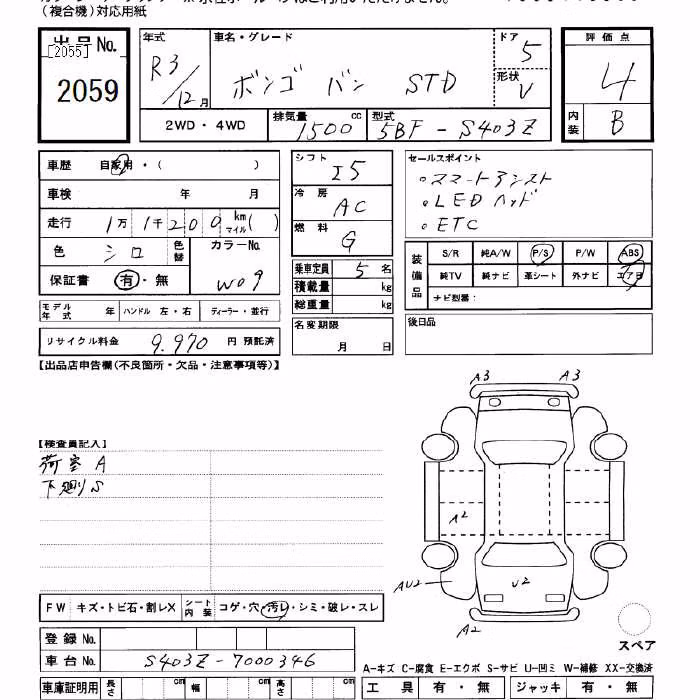 （複合機）対応用紙
出品No.
[2055]
2059
年式 R3/12月
車名・グレード ボンゴ バン STD
ドア 5
形状 V
2WD・4WD
排気量 1500 cc
型式 5BF-S403Z
評価点 4
内装 B
車歴 自家用・（ ）
車検 年 月
走行 1万1千200 km マイル( )
色 シロ 色替
カラーNo. W09
保証書 有・無
モデル年式 年 ハンドル 左・右 ディーラー・並行
リサイクル料金 9.970 円 預託済
シフト I5
冷房 AC
燃料 G
乗車定員 5 名
積載量 kg
総重量 kg
名変期限 月 日
セールスポイント
。スマートアシスト
。LEDヘッド
。ETC
装備品
S/R 純A/W P/S P/W ABS
純TV 純ナビ 革シート 外ナビ エアB
ナビ型番：
後日品
【出品店申告欄(不良箇所・欠品・注意事項等)】
【検査員記入】
荷室 A
下廻りS
A3 A3
A2
AU2 U2
A2
スペア
FW キズ・トビ石・割レX シート内装 コゲ・穴・汚レ・シミ・破レ・スレ
登録No.
車台No. S403Z-7000346
A-キズ C-腐食 E-エクボ S-サビ U-凹ミ W-補修 XX-交換済
車庫証明用 長さ cm 幅 cm 高さ cm
工具 有・無 ジャッキ 有・無